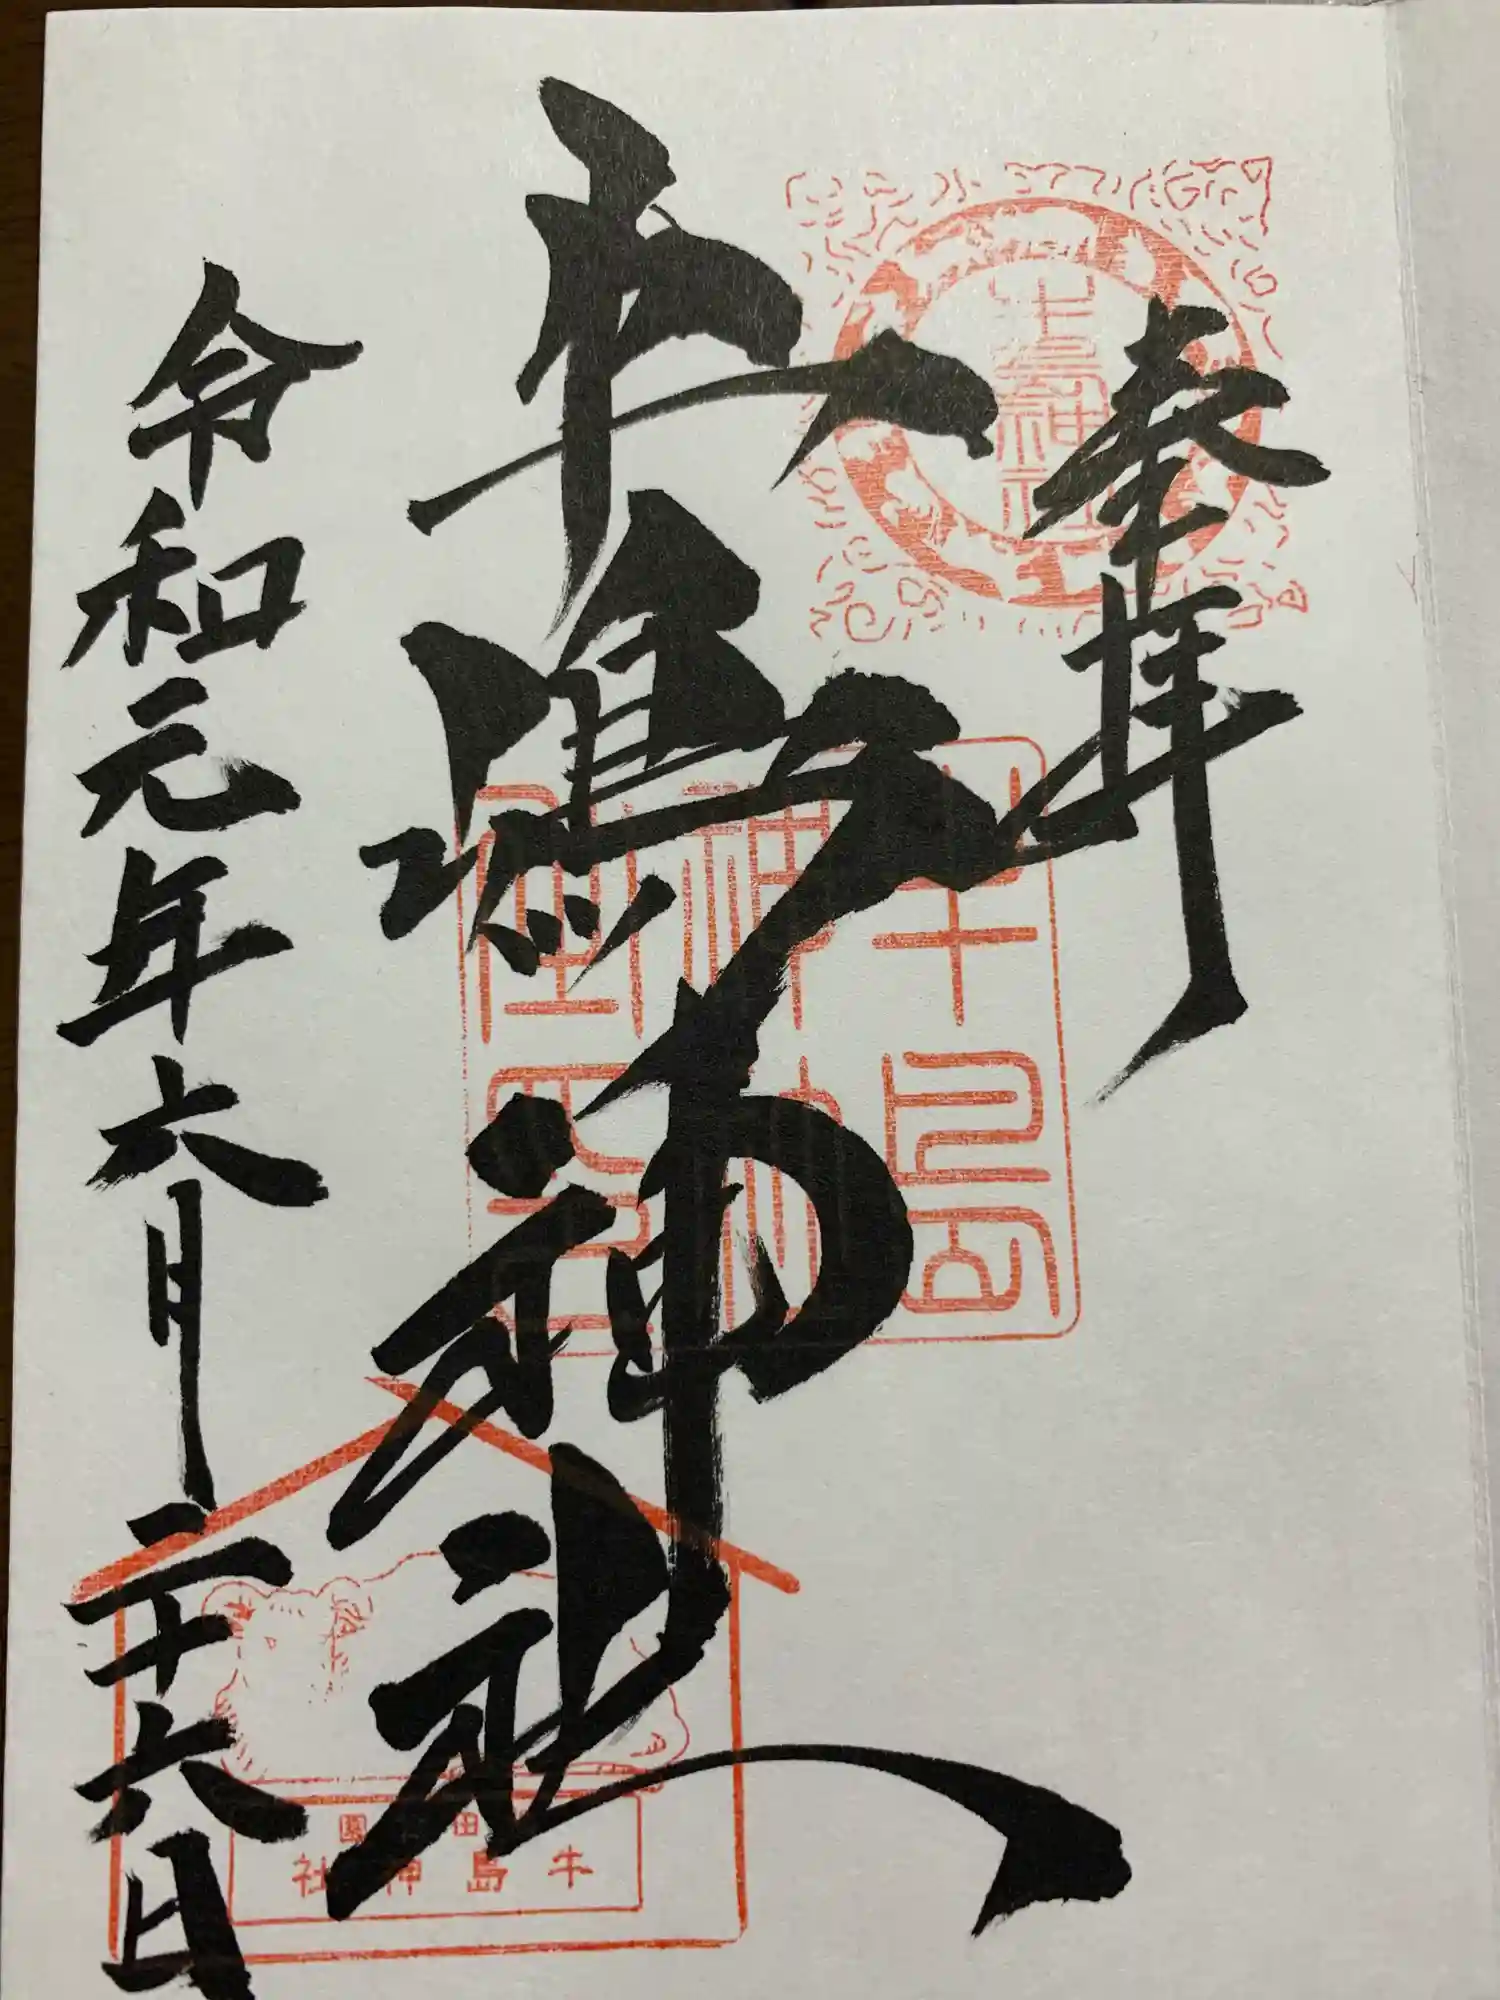 奉拝
牛嶋神社
令和元年六月二十六日
牛島神社
牛島神社
社神島牛